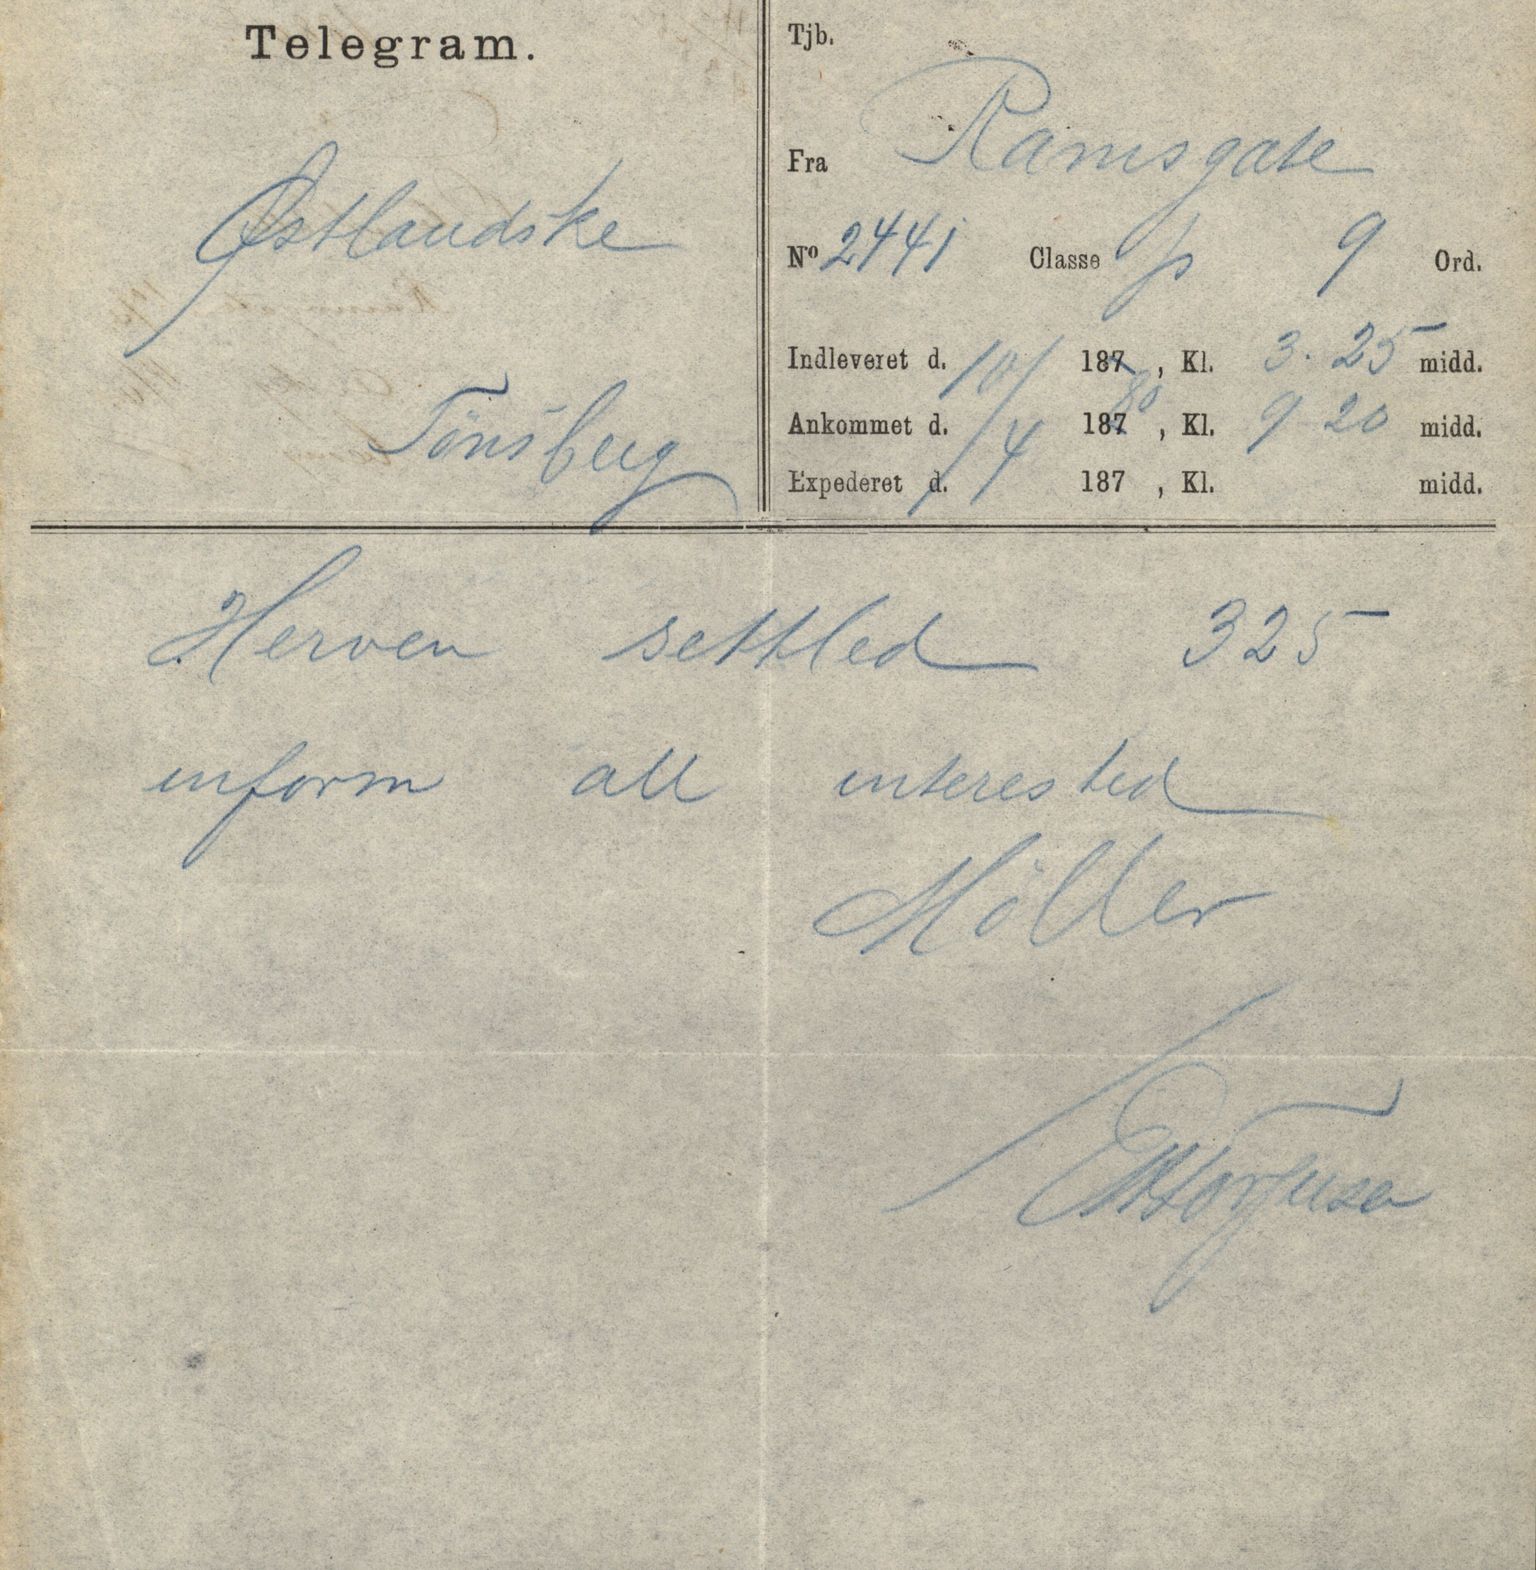 Telegram.
Østlandske
Tönsberg
Tjb.
Fra Ramsgate
No 2441 Classe p 9 Ord.
Indleveret d. 10/4 187 80, Kl. 3.25 midd.
Ankommet d. 187 , Kl. 9 20 midd.
Expederet d. 187 , Kl. midd.
Herven settled 325
inform all interested
Möller